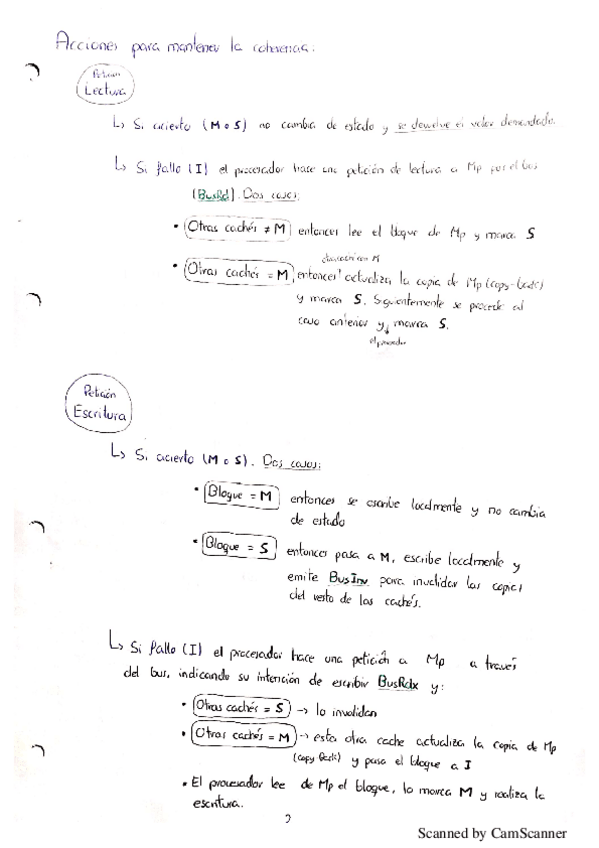 Acciones para mantener la coherencia:
Petición
Lectura
↳ Si acierto (M o S) no cambia de estado y se devuelve el valor demandado.
↳ Si fallo (I) el procesador hace una petición de lectura a Mp por el bus
(BusRd). Dos casos:
• Otras cachés ≠ M entonces lee el bloque de Mp y marca S
• Otras cachés = M entonces actualiza la copia de Mp (copy-back)
y marca S. Siguientemente se procede al
caso anterior y marca S.
el procesador
Petición
Escritura
↳ Si acierto (M o S). Dos casos:
• Bloque = M entonces se escribe localmente y no cambia
de estado
• Bloque = S entonces pasa a M, escribe localmente y
emite BusInv para invalidar las copias
del resto de las cachés.
↳ Si fallo (I) el procesador hace una petición a Mp a través
del bus, indicando su intención de escribir BusRdx y:
• Otras cachés = S → lo invalidan
• Otras cachés = M → esta otra cache actualiza la copia de Mp
(copy back) y pasa el bloque a I
• El procesador lee de Mp el bloque, lo marca M y realiza la
escritura.
2
Scanned by CamScanner